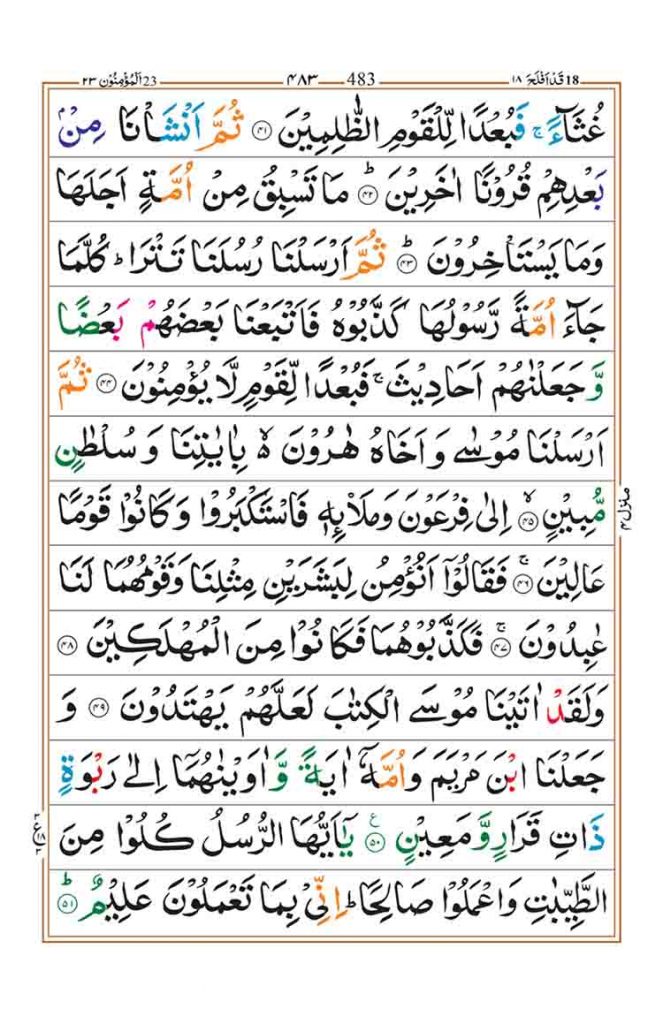 18 قَدْ اَفْلَحَ ١٨ 483 ٤٨٣ 23 اَلْمُؤْمِنُوْن ٢٣
غُثَآءً ۚ فَبُعْدًا لِّلْقَوْمِ الظّٰلِمِيْنَ ﴿٤١﴾ ثُمَّ اَنْشَاْنَا مِنْۢ
بَعْدِهِمْ قُرُوْنًا اٰخَرِيْنَ ﴿٤٢﴾ؕ مَا تَسْبِقُ مِنْ اُمَّةٍ اَجَلَهَا
وَمَا يَسْتَاْخِرُوْنَ ﴿٤٣﴾ؕ ثُمَّ اَرْسَلْنَا رُسُلَنَا تَتْرَا ؕ كُلَّمَا
جَآءَ اُمَّةً رَّسُوْلُهَا كَذَّبُوْهُ فَاَتْبَعْنَا بَعْضَهُمْ بَعْضًا
وَّ جَعَلْنٰهُمْ اَحَادِيْثَ ۚ فَبُعْدًا لِّقَوْمٍ لَّا يُؤْمِنُوْنَ ﴿٤٤﴾ ثُمَّ
اَرْسَلْنَا مُوْسٰى وَ اَخَاهُ هٰرُوْنَ ۙ۬ بِاٰيٰتِنَا وَ سُلْطٰنٍ
مُّبِيْنٍ ﴿٤٥﴾ۙ اِلٰى فِرْعَوْنَ وَمَلَا۟ئِهٖ فَاسْتَكْبَرُوْا وَ كَانُوْا قَوْمًا
عَالِيْنَ ﴿٤٦﴾ۚ فَقَالُوْۤا اَنُؤْمِنُ لِبَشَرَيْنِ مِثْلِنَا وَقَوْمُهُمَا لَنَا
عٰبِدُوْنَ ﴿٤٧﴾ۚ فَكَذَّبُوْهُمَا فَكَانُوْا مِنَ الْمُهْلَكِيْنَ ﴿٤٨﴾
وَلَقَدْ اٰتَيْنَا مُوْسَى الْكِتٰبَ لَعَلَّهُمْ يَهْتَدُوْنَ ﴿٤٩﴾ وَ
جَعَلْنَا ابْنَ مَرْيَمَ وَاُمَّهٗۤ اٰيَةً وَّاٰوَيْنٰهُمَاۤ اِلٰى رَبْوَةٍ
ذَاتِ قَرَارٍ وَّمَعِيْنٍ ﴿٥٠﴾ ع يٰۤاَيُّهَا الرُّسُلُ كُلُوْا مِنَ
الطَّيِّبٰتِ وَاعْمَلُوْا صَالِحًا ؕ اِنِّيْ بِمَا تَعْمَلُوْنَ عَلِيْمٌ ﴿٥١﴾ؕ
منزل ٤